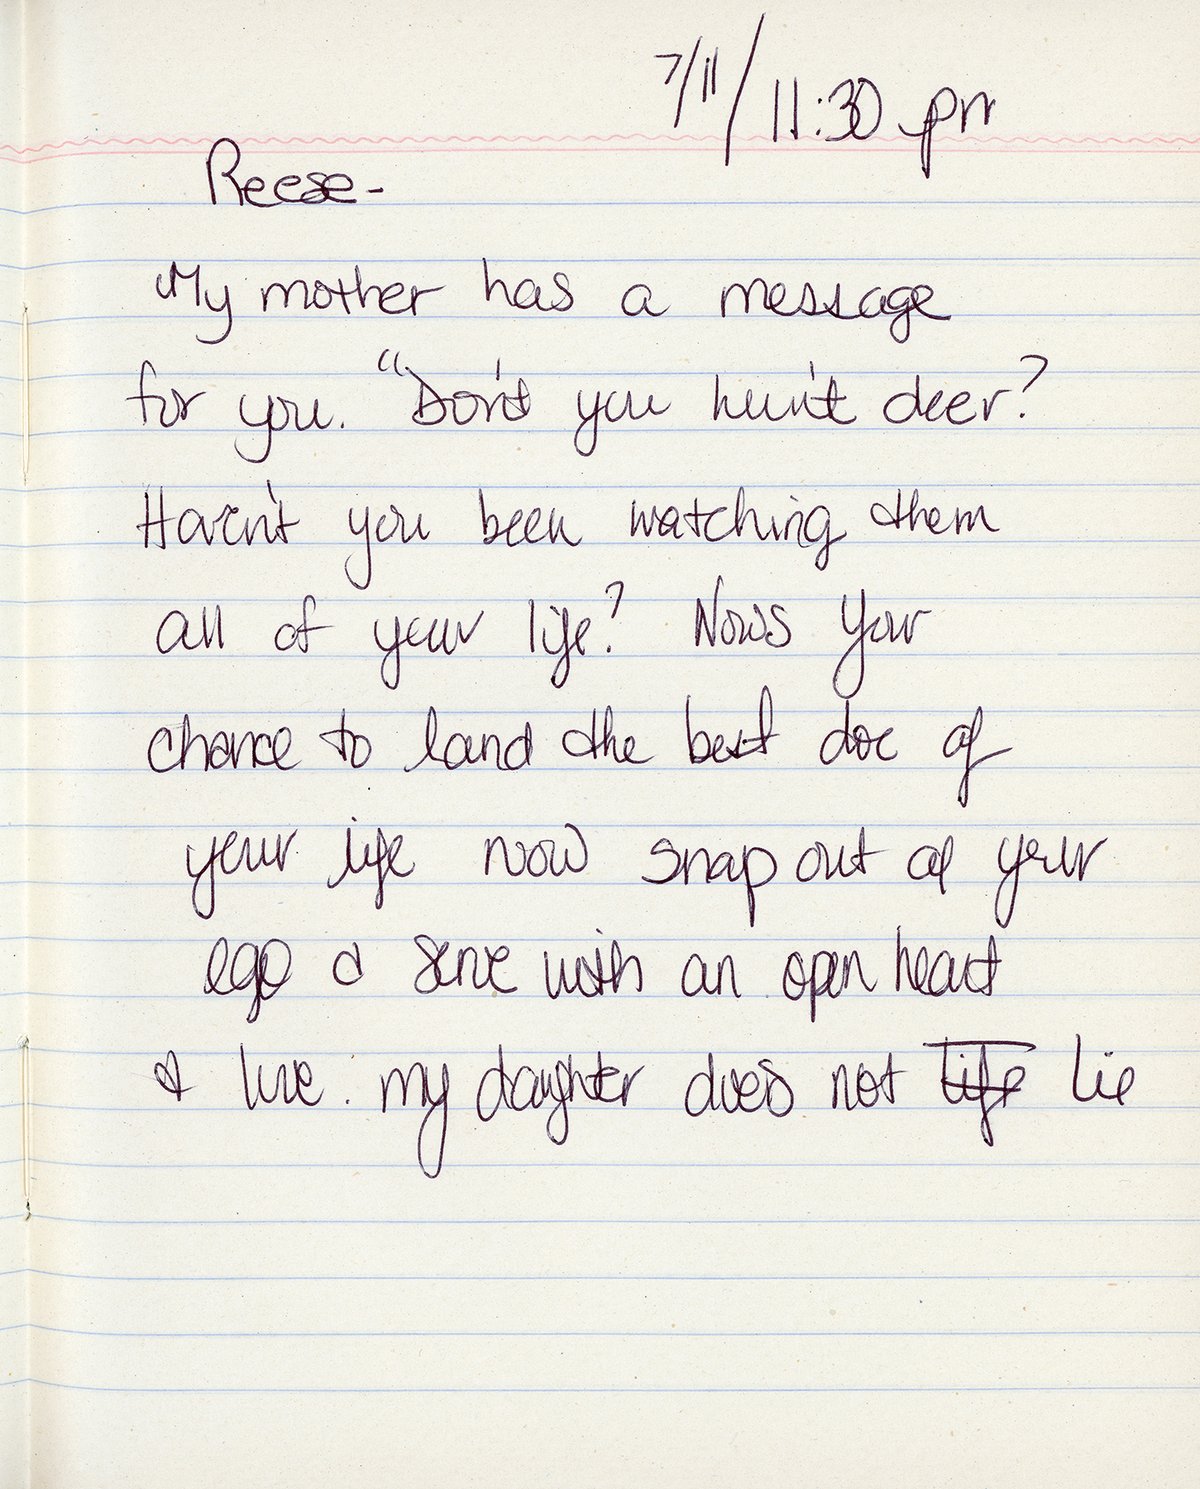 7/11/11:30 pm
Reese-
My mother has a message
for you. "Don't you hun't deer?
Haven't you been watching them
all of your life? Nows your
chance to land the best doe of
your life now snap out of your
ego & serve with an open heart
& love. my daughter does not life lie